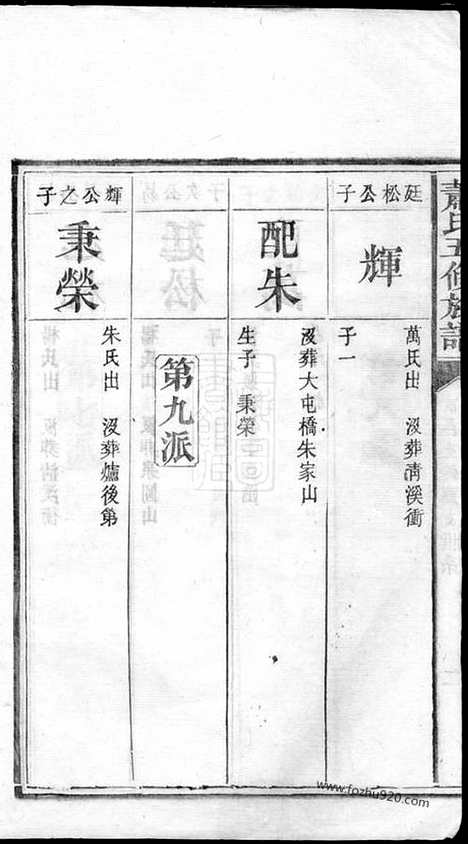 蕭氏五修族譜
廷松公子
輝
萬氏出 沒葬淸溪衝
子一
配朱
沒葬大屯橋朱家山
生子 秉榮
第九派
輝公之子
秉榮
朱氏出 沒葬爐後第
www.fozhu920.com